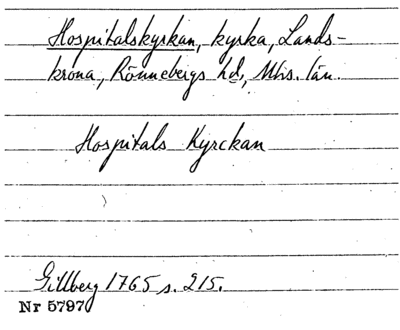 Hospitalskyrkan, kyrka, Lands-
krona, Rönnebergs hd, Mhs. län.
Hospitals Kyrckan
Gillberg 1765 s. 215.
Nr 5797